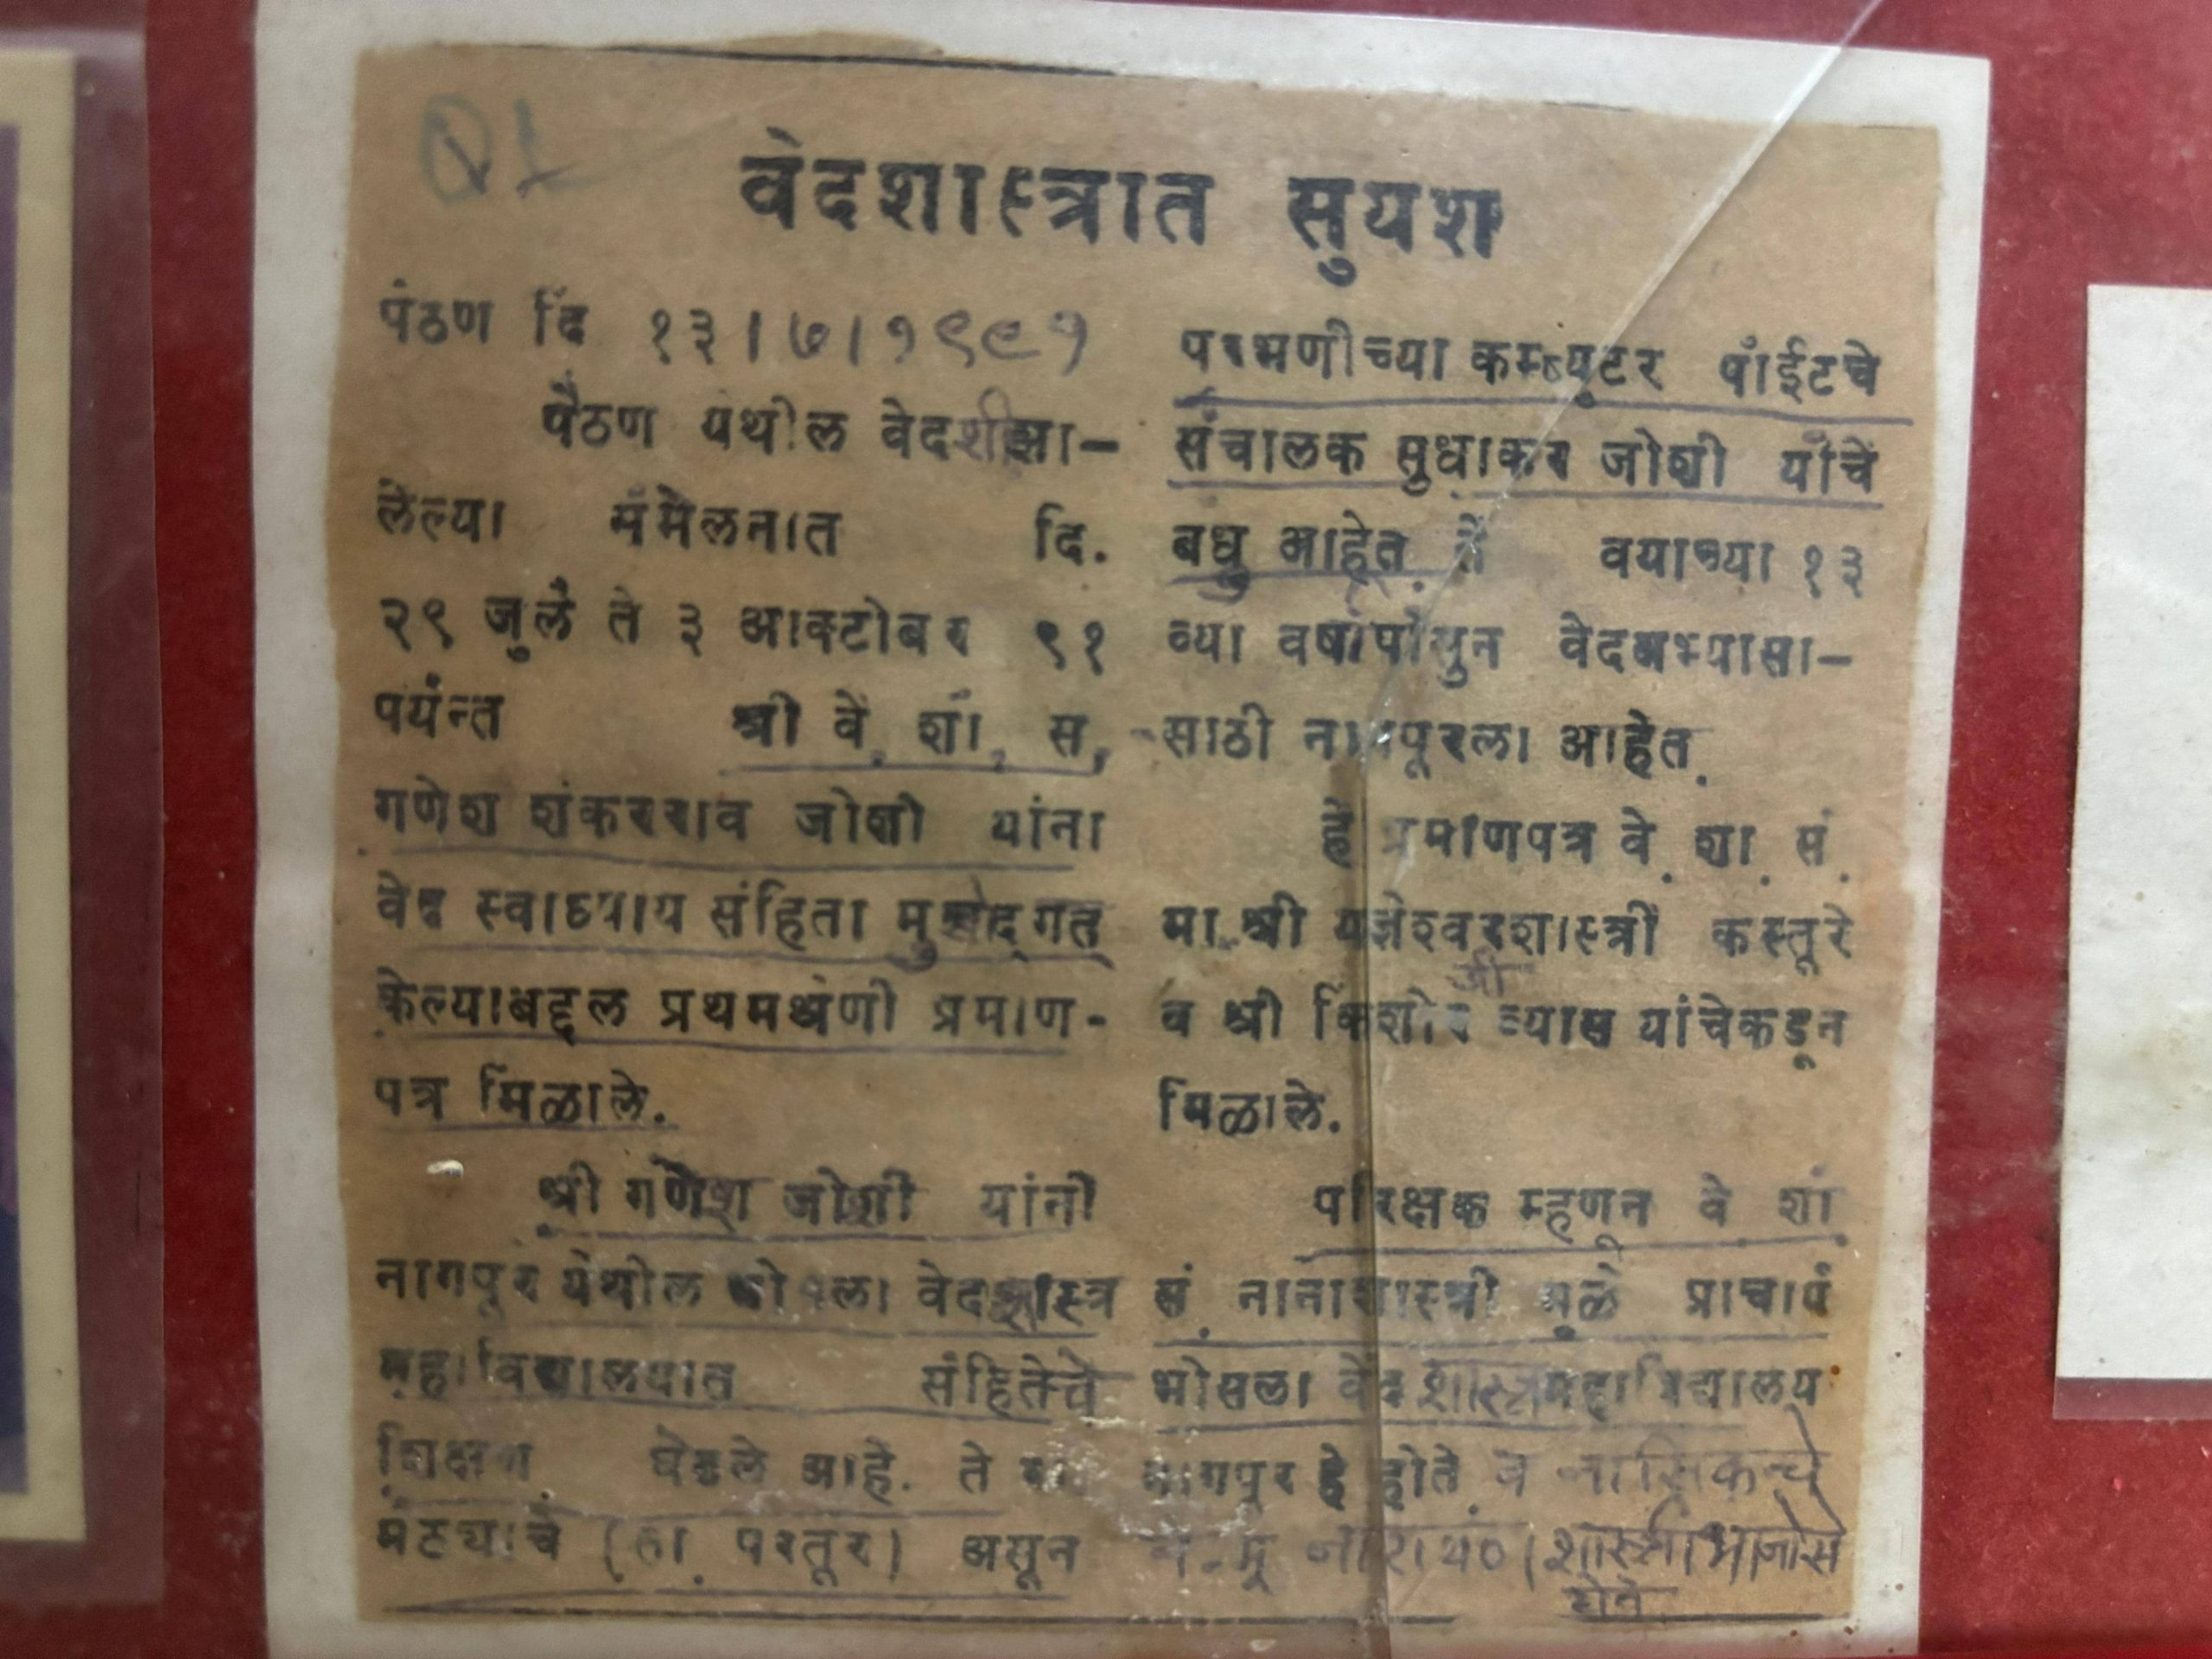 वेदशास्त्रात सुयश
पैठण दि १३।७।१९९१
पैठण येथील वेदशीझा-
लेल्या संमेलनात दि.
२९ जुलै ते ३ आक्टोबर ९१
पर्यन्त श्री वे. शा. स.
गणेश शंकरराव जोशी यांना
वेद स्वाध्याय संहिता मुखोद्गत
केल्याबद्दल प्रथमश्रेणी प्रमाण-
पत्र मिळाले.
श्री गणेश जोशी यांनी
नागपूर येथील भोसला वेदशास्त्र
महाविद्यालयात संहितेचे
शिक्षण घेतले आहे. ते
(ता. परतूर) असून
परभणीच्या कम्प्युटर पॉईटचे
संचालक सुधाकर जोशी यांचे
बधु आहेत. ते वयाच्या १३
व्या वर्षापासुन वेदअभ्यासा-
साठी नागपूरला आहेत.
हे प्रमाणपत्र वे. शा. सं.
मा. श्री यज्ञेश्वरशास्त्री कस्तूरे
व श्री किशोरजी व्यास यांचेकडून
मिळाले.
परिक्षक म्हणून वे शा.
सं. नानाशास्त्री मुळे प्राचार्य
भोसला वेद शास्त्र महाविद्यालय
नागपुर हे होते. व नासिकचे
वे. मू. नारायण शास्त्री
होते